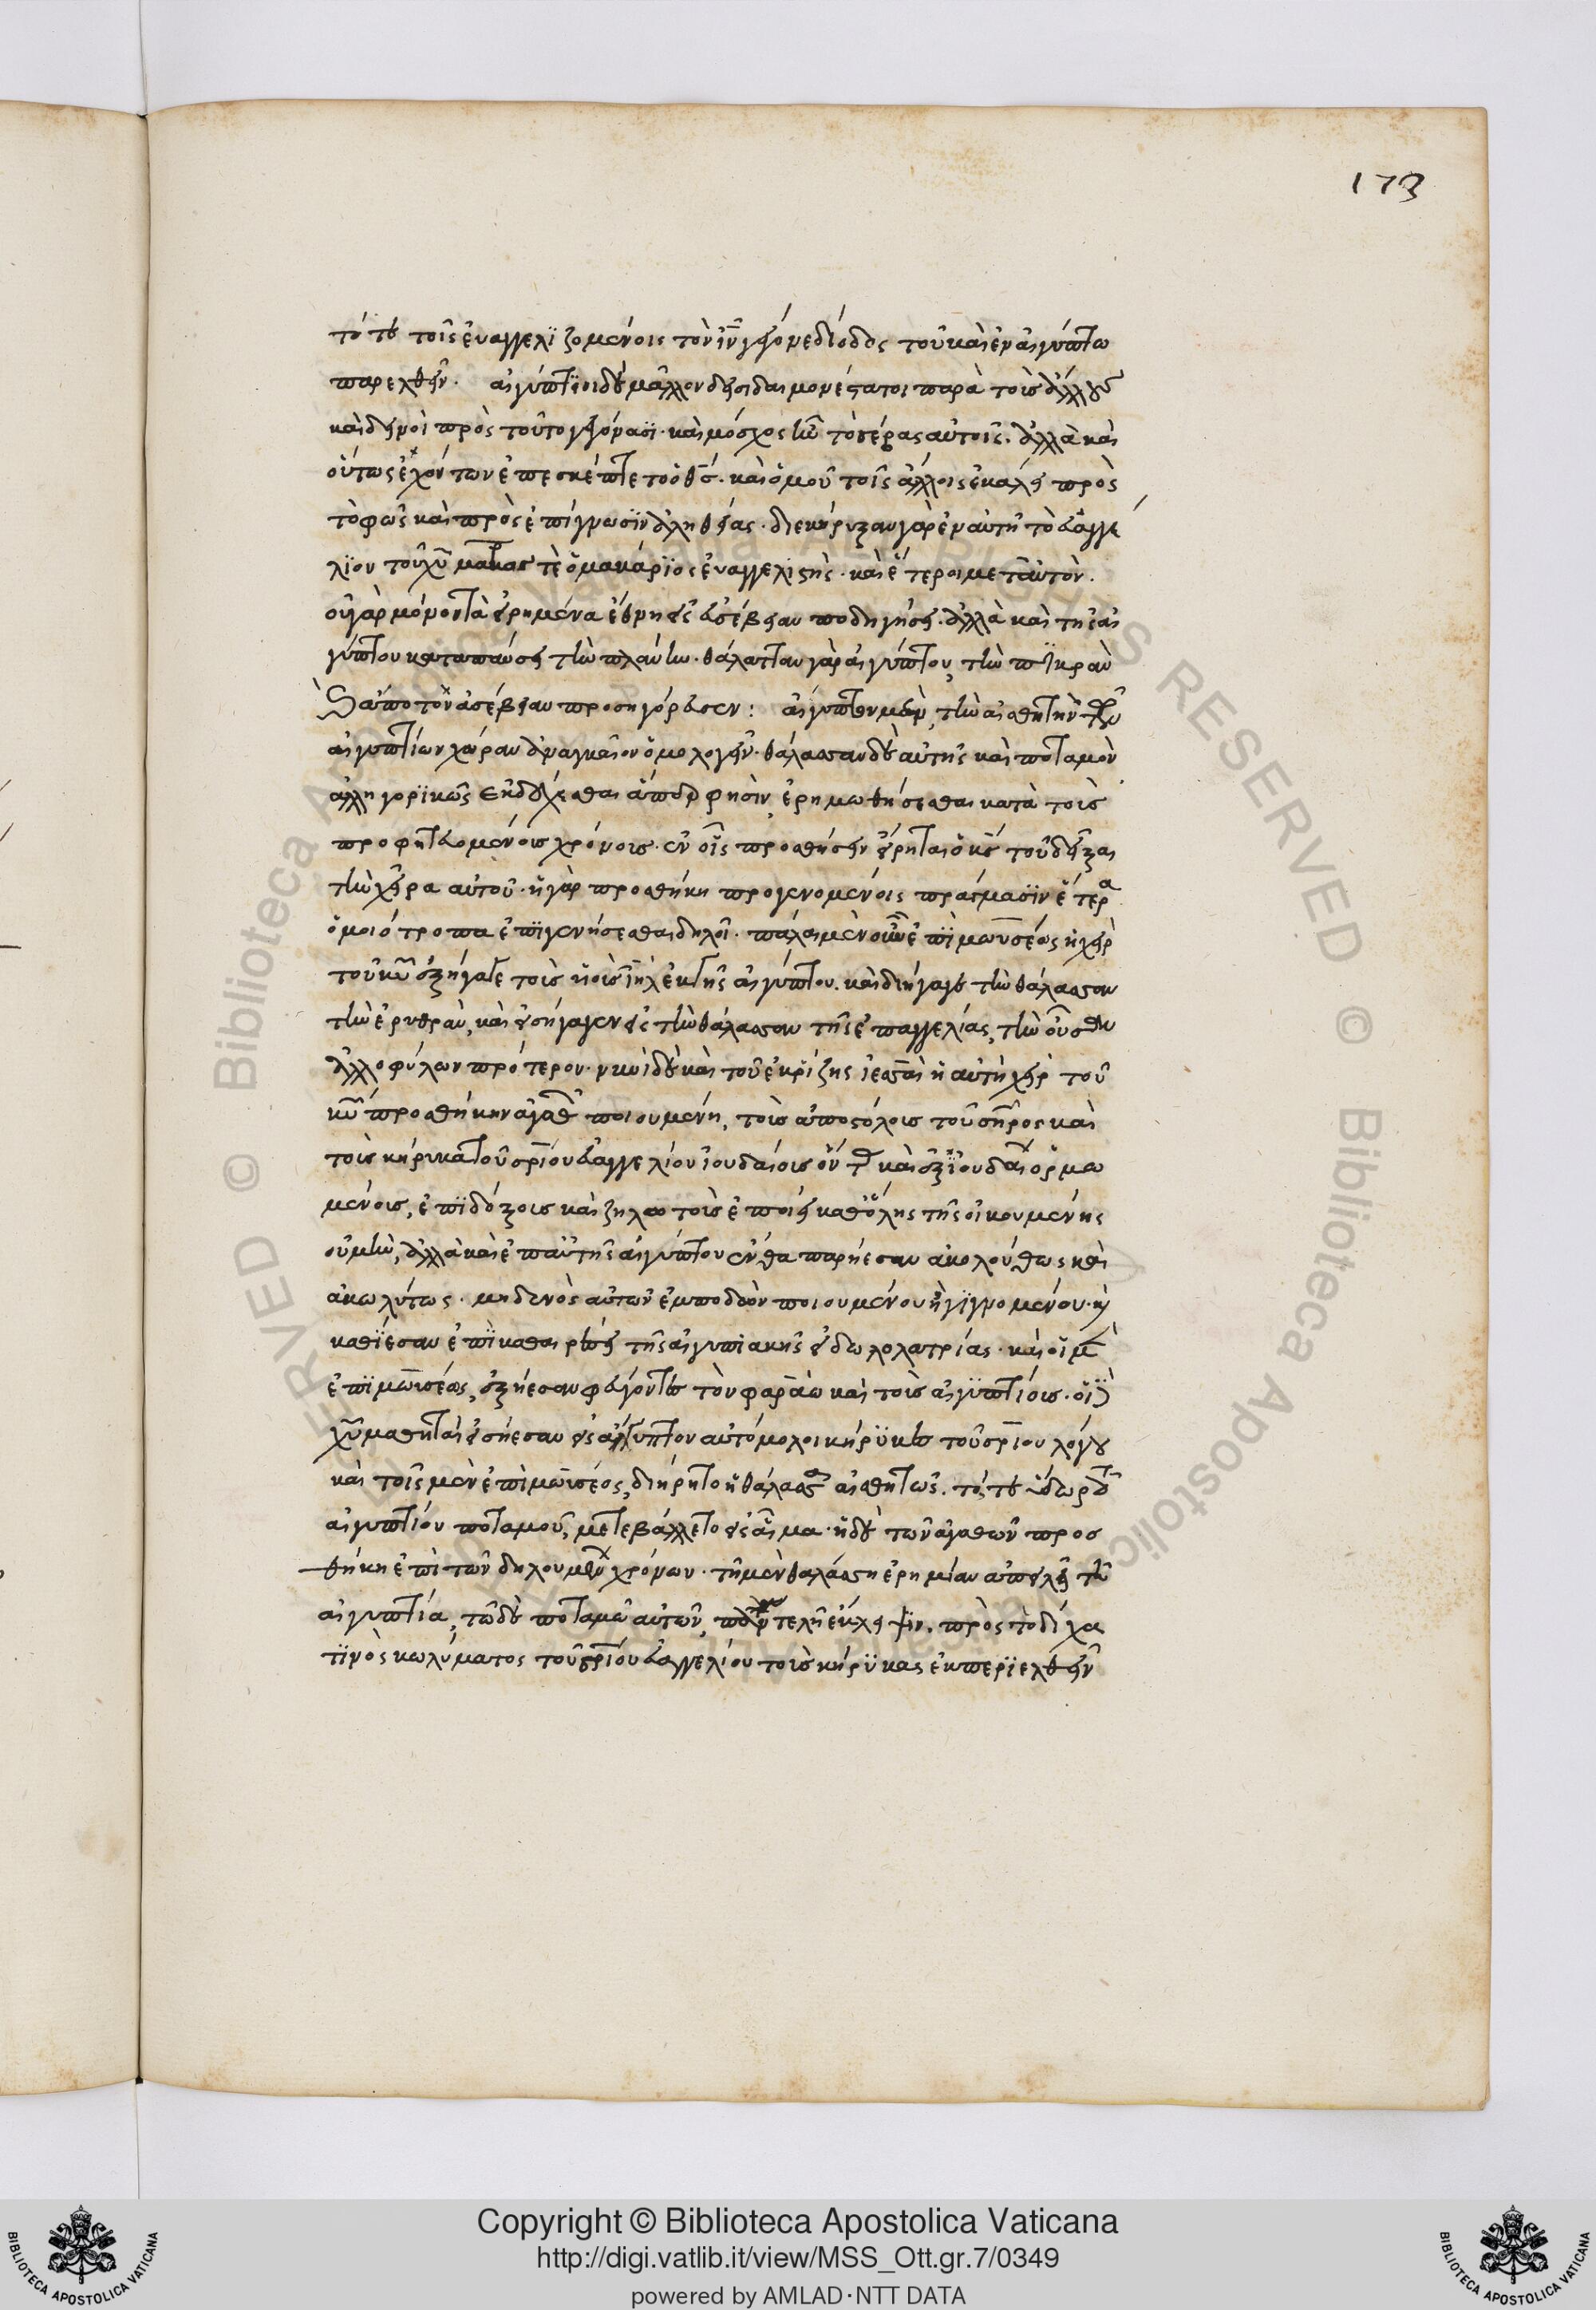 173
τότε τοῖς ἐυαγγελϊζομένοις τὸν ἰν γεγόνε διόδος τοῦ καὶ ἐν αἰγύπτω
παρελθεῖν. αἰγύπτϊοι δὲ μᾶλλον δεισιδαιμονέστατοι παρὰ τοὺς ἄλλους
καὶ δεινοὶ πρὸς τοῦτο γεγόνασϊ. καὶ μόσχος ἦν τὸ σέβας αὐτοῖς. ἀλλὰ καὶ
οὕτως ἐχόντων ἐπεσκέπτετο ὁ θσ. καὶ ὁμοῦ τοῖς ἄλλοις ἐκάλει πρὸς
τὸ φῶς καὶ πρὸς ἐπίγνωσϊν ἀληθείας. διεκήρυξαν γὰρ ἐν αὐτῇ τὸ εὐαγγέ
λϊον τοῦ χυ τὲ ὁ μακάρϊος ἐυαγγελιστὴς. καὶ ἕτεροι μετ αὐτὸν.
οὐ γὰρ μόνον τὰ εἰρημένα ἔθνη εἰς εὐσέβειαν ποδηγήσει. ἀλλὰ καὶ τῆς αἰ
γύπτου καταπαύσει τὴν πλάνην. θάλατταν γὰρ αἰγύπτου, τὴν πϊκρὰν
ἀπο τῶν ἀσέβειαν προσηγόρευσεν: αἴγυπτον μὲν, τὴν αἰσθητὴν τῶν
αἰγυπτίων χώραν ἀναγκαῖον ὁμολογεῖν. θάλασσαν δὲ αὐτῆς καὶ ποταμὸν
ἀλληγορϊκῶς ἐκδέχεσθαι ἅπερ φησὶν, ἐρημωθήσεσθαι κατὰ τοὺς
προφητευομένους χρόνους. ἐν οἷς προσθήσειν εἴρηται ὁ κς τοῦ δεῖξαι
τὴν χεῖρα αὐτοῦ. ἡ γὰρ προσθήκη προγενομένοις πράγμασϊν ἕτερα
ὁμοιότροπα ἐπϊγενήσεσθαι δηλοῖ. πάλαι μὲν οὖν ἐπὶ μωυσέως ἡ χεὶρ
τοῦ κυ ἐξήγαγε τοὺς υἱοὺς ιηλ ἐκ τῆς αἰγύπτου. καὶ διήγαγε τὴν θάλασσαν
τὴν ἐρυθρὰν, καὶ εἰσήγαγεν εἰς τὴν θάλασσαν τῆς ἐπαγγελίας, τὴν οὖσαν
ἀλλοφύλων πρότερον. νυνὶ δὲ καὶ τοῦ ἐκ ῥίζης ἰεσσαὶ ἡ αὐτὴ χεὶρ τοῦ
κυ προσθήκην ἀγαθῶν ποιουμένη, τοὺς ἀποστόλους τοῦ σηρος καὶ
τοὺς κήρυκας τοῦ σρίου εὐαγγελίου ἰουδαίους ὄντας καὶ ἐξ ἰουδαίων ὁρμω
μένους, ἐπϊδόξους καὶ ζηλωτοὺς ἐποίει καθ ὅλης τῆς οἰκουμένης
οὐ μὴν, ἀλλὰ καὶ ἐπ αὐτῆς αἰγύπτου ἔνθα παρήεσαν ἀκολούθως καὶ
ἀκωλύτως. μηδενὸς αὐτῶν ἐμποδὼν ποιουμένου ἢ γϊγνομένου. καὶ
καθΐεσαν ἐπϊ καθαιρέσει τῆς αἰγυπιακῆς εἰδωλολατρίας. καὶ οἱ μὲν
ἐπϊ μωισέως, ἐξήεσαν φεύγοντες τὸν φαραὼ καὶ τοὺς αἰγϋπτίους. οἱ δὲ
χυ μαθηταὶ εἰσήεσαν εἰς αἴγυπτον αὐτόμολοι κήρϋκες τοῦ σρίου λόγου
καὶ τοῖς μὲν ἐπὶ μωισέος, διήρητο ἡ θάλασσα αἰσθητῶς. τό, τε ὕδωρ τοῦ
αἰγυπτίου ποταμοῦ, μετεβάλλετο εἰς αἷμα. ἡ δὲ τῶν ἀγαθῶν προσ
θήκη ἐπὶ τῶν δηλουμένων χρόνων. τῇ μὲν θαλάσση ἐρημίαν ἀπειλεῖ τῆ
αἰγυπτία, τῶ δὲ ποταμῶ αὐτῶν, παντελῆ ἔκλειψϊν. πρὸς τὸ δίχα
τϊνὸς κωλύματος τοῦ σρίου εὐαγγελίου τοὺς κήρϋκας ἐκπερϊελθεῖν
Copyright © Biblioteca Apostolica Vaticana
http://digi.vatlib.it/view/MSS_Ott.gr.7/0349
powered by AMLAD·NTT DATA